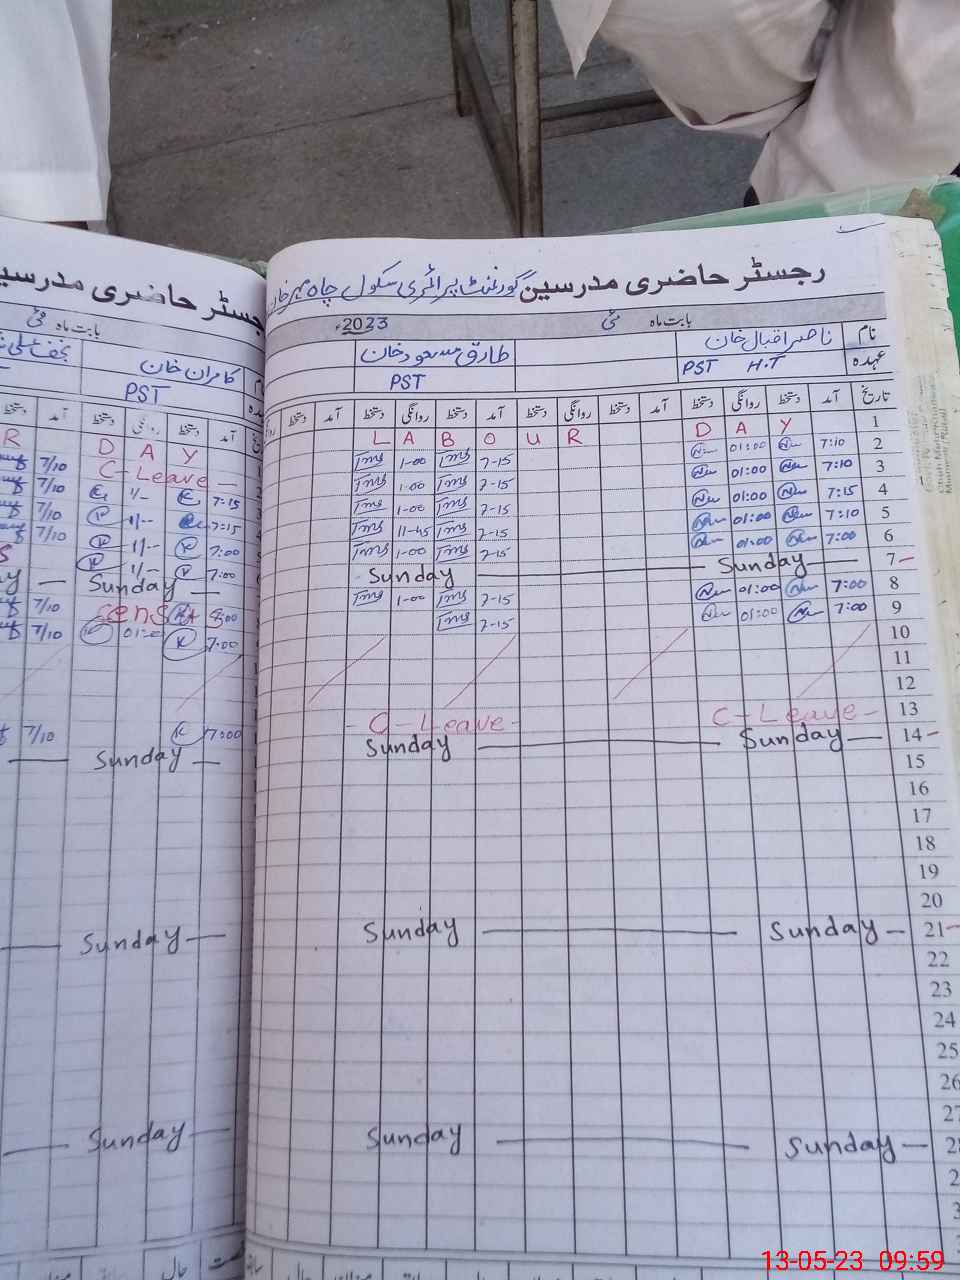 رجسٹر حاضری مدرسین گورنمنٹ پرائمری سکول چاہ میر خان
بابت ماہ مئی 2023ء
نام ناصر اقبال خان طارق مسعود خان
عہدہ PST H.T PST
تاریخ آمد دستخط روانگی دستخط آمد دستخط روانگی دستخط آمد دستخط روانگی دستخط آمد دستخط
1 LABOUR DAY
2 7:10 01:00 7-15 1-00
3 7:10 01:00 7-15 1-00
4 7:15 01:00 7-15 1-00
5 7:10 01:00 7-15 11-45
6 7:00 01:00 7-15 1-00
7 Sunday Sunday
8 7:00 01:00 7-15 1-00
9 7:00 01:00 7-15
10
11
12
13 C-Leave C-Leave
14 Sunday Sunday
15
16
17
18
19
20
21 Sunday Sunday
22
23
24
25
26
27
28 Sunday Sunday
جسٹر حاضری مدرسین
بابت ماہ مئی
کامران خان
PST
آمد دستخط روانگی دستخط آمد دستخط
R DAY
7/10 C-Leave
7/10 1/- 7:15
7/10 1/-- 7:15
7/10 1/-- 7:00
1/- 7:00
Sunday
7/10 8:00
7/10 01:00 7:00
7/10 7:00
Sunday
Sunday
Sunday
13-05-23 09:59